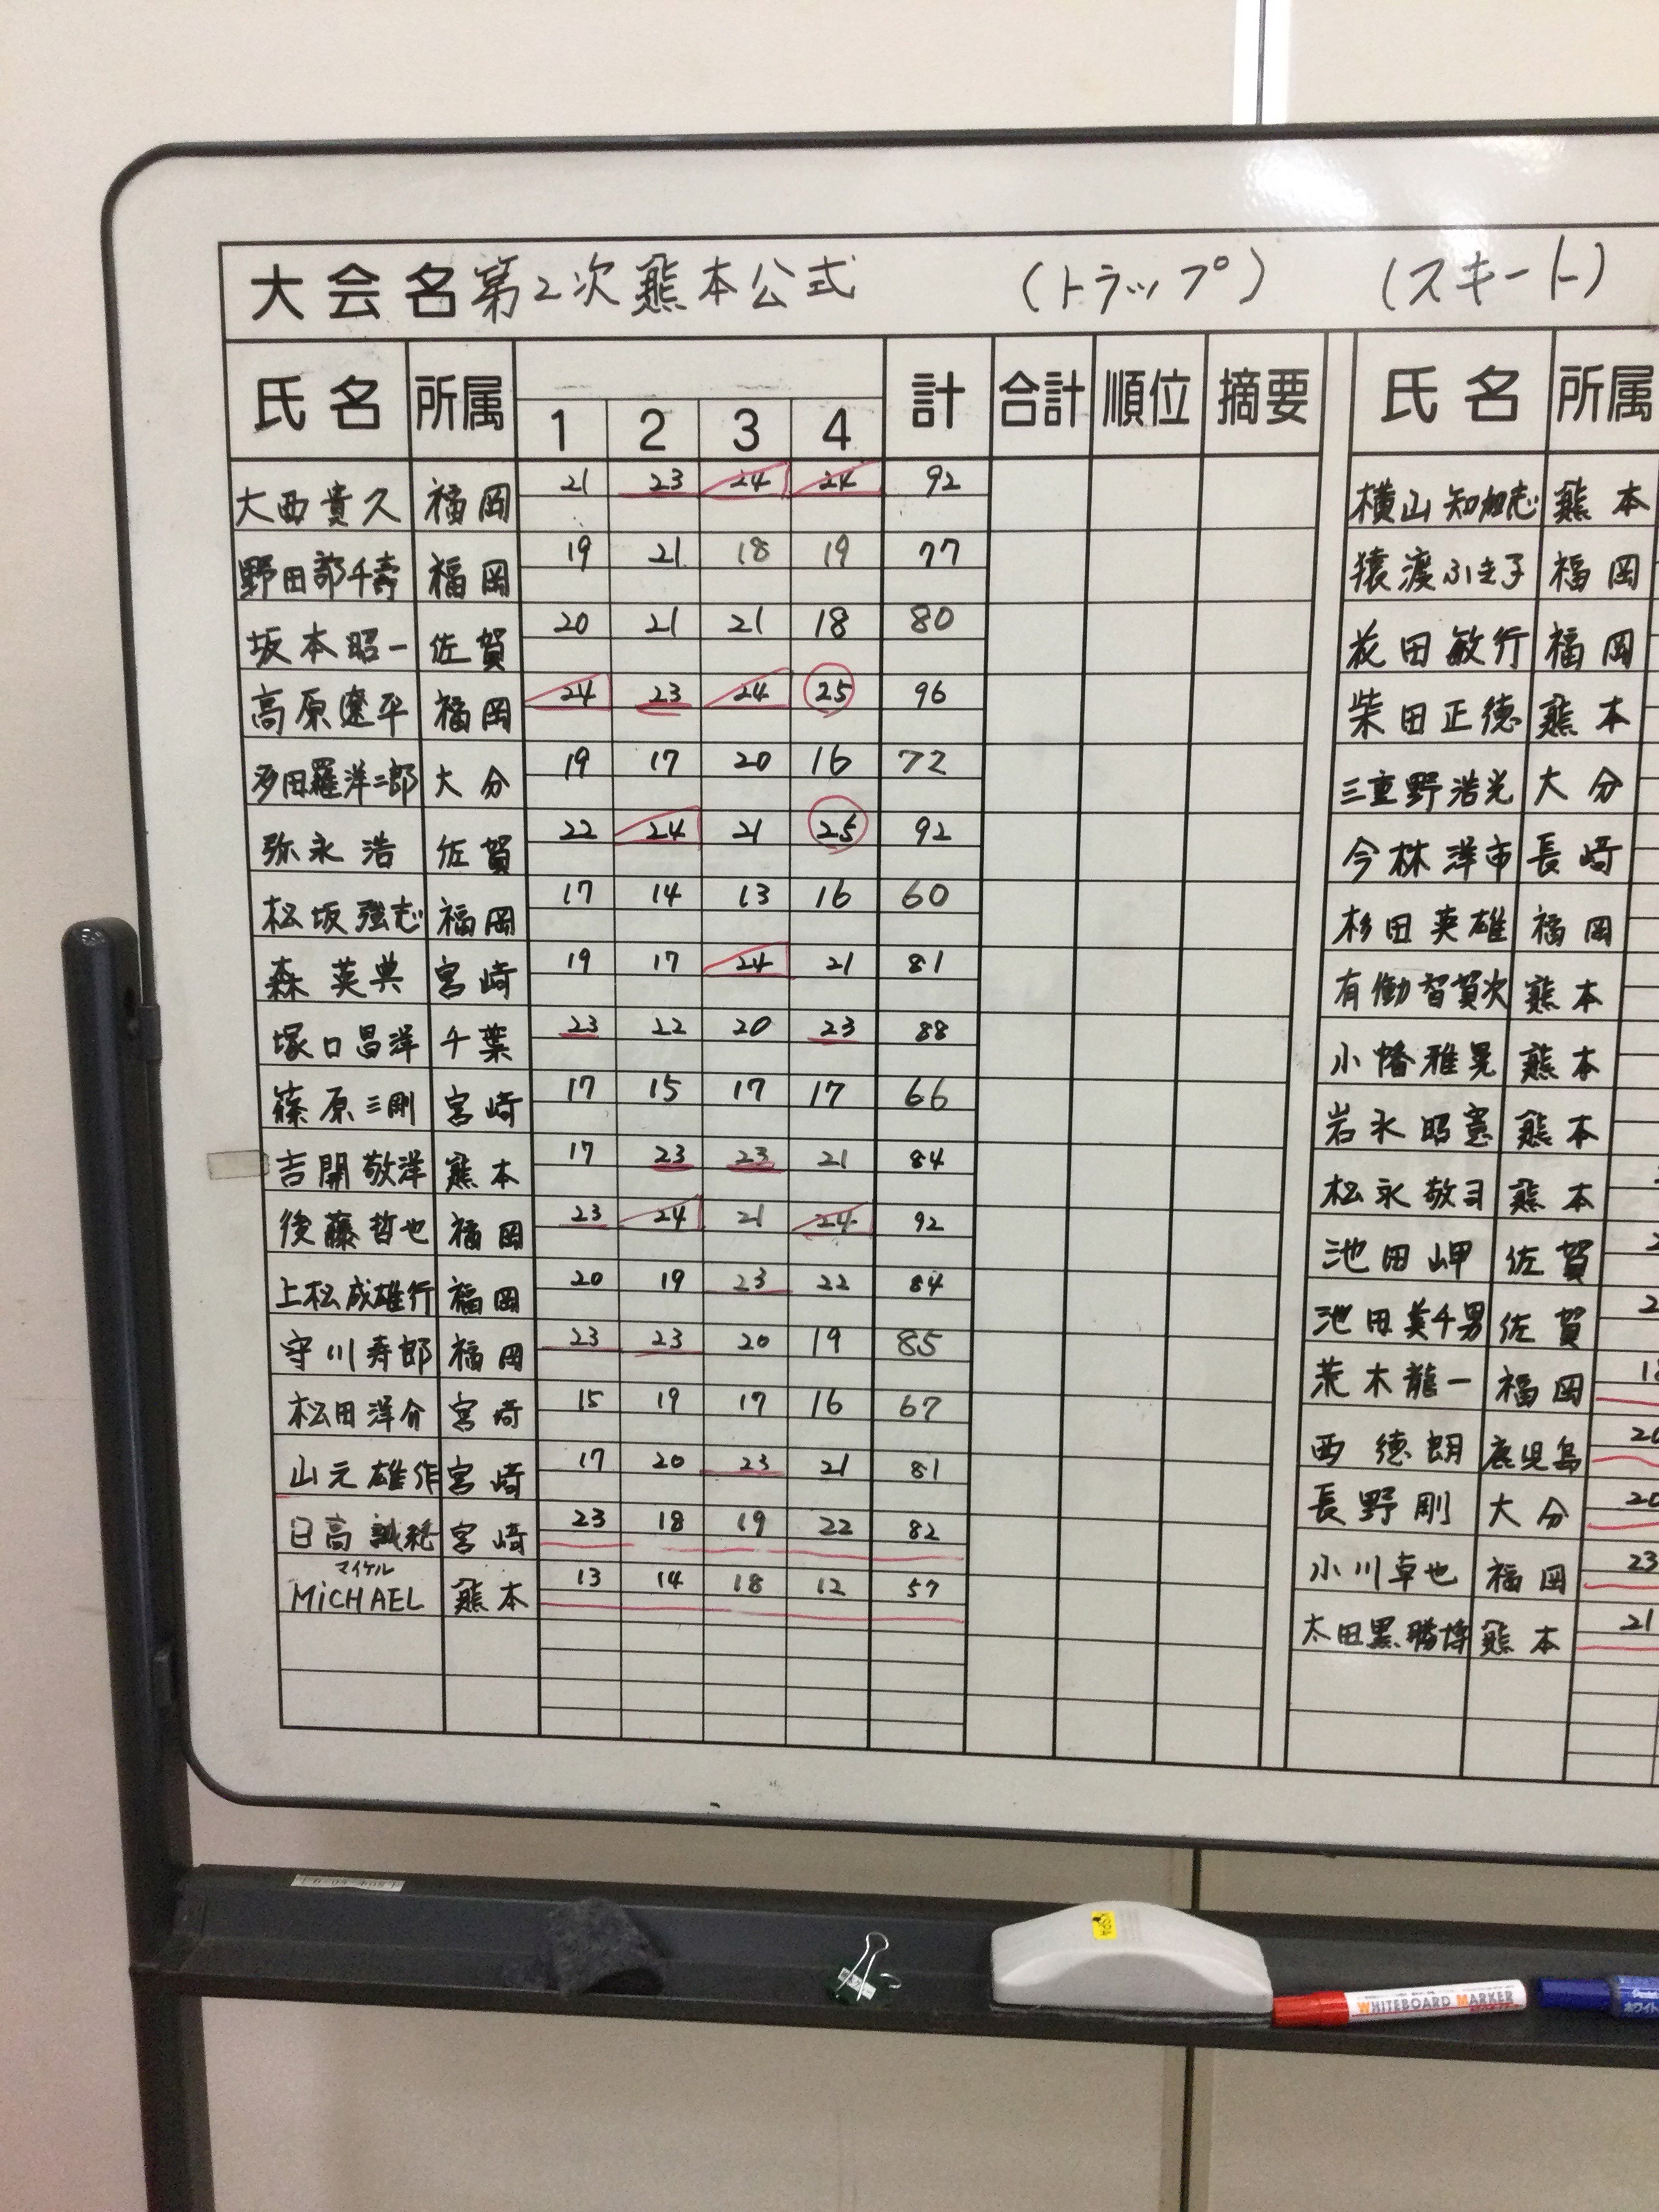 大会名 第2次熊本公式 (トラップ) (スキート)
氏名 所属 1 2 3 4 計 合計 順位 摘要 氏名 所属
大西貴久 福岡 21 23 24 24 92 横山知加志 熊本
野田部千壽 福岡 19 21 18 19 77 猿渡ふき子 福岡
坂本昭一 佐賀 20 21 21 18 80 花田敏行 福岡
高原遼平 福岡 24 23 24 25 96 柴田正徳 熊本
多田羅洋二郎 大分 19 17 20 16 72 三重野浩光 大分
弥永浩 佐賀 22 24 21 25 92 今林洋市 長崎
松坂強志 福岡 17 14 13 16 60 杉田英雄 福岡
森英典 宮崎 19 17 24 21 81 有働智賀次 熊本
塚口昌洋 千葉 23 22 20 23 88 小幡雅晃 熊本
篠原三剛 宮崎 17 15 17 17 66 岩永昭憲 熊本
吉開敬洋 熊本 17 23 23 21 84 松永敬司 熊本
後藤哲也 福岡 23 24 21 24 92 池田岬 佐賀
上松成雄行 福岡 20 19 23 22 84 池田美千男 佐賀
守川寿郎 福岡 23 23 20 19 85 荒木龍一 福岡
松田洋介 宮崎 15 19 17 16 67 西徳朗 鹿児島
山元雄作 宮崎 17 20 23 21 81 長野剛 大分
日高誠 宮崎 23 18 19 22 82 小川卓也 福岡 23
マイケル
MiCHAEL 熊本 13 14 18 12 57 太田黒勝博 熊本 21
KSPA
WHITEBOARD MARKER
Pentel
ホワイト